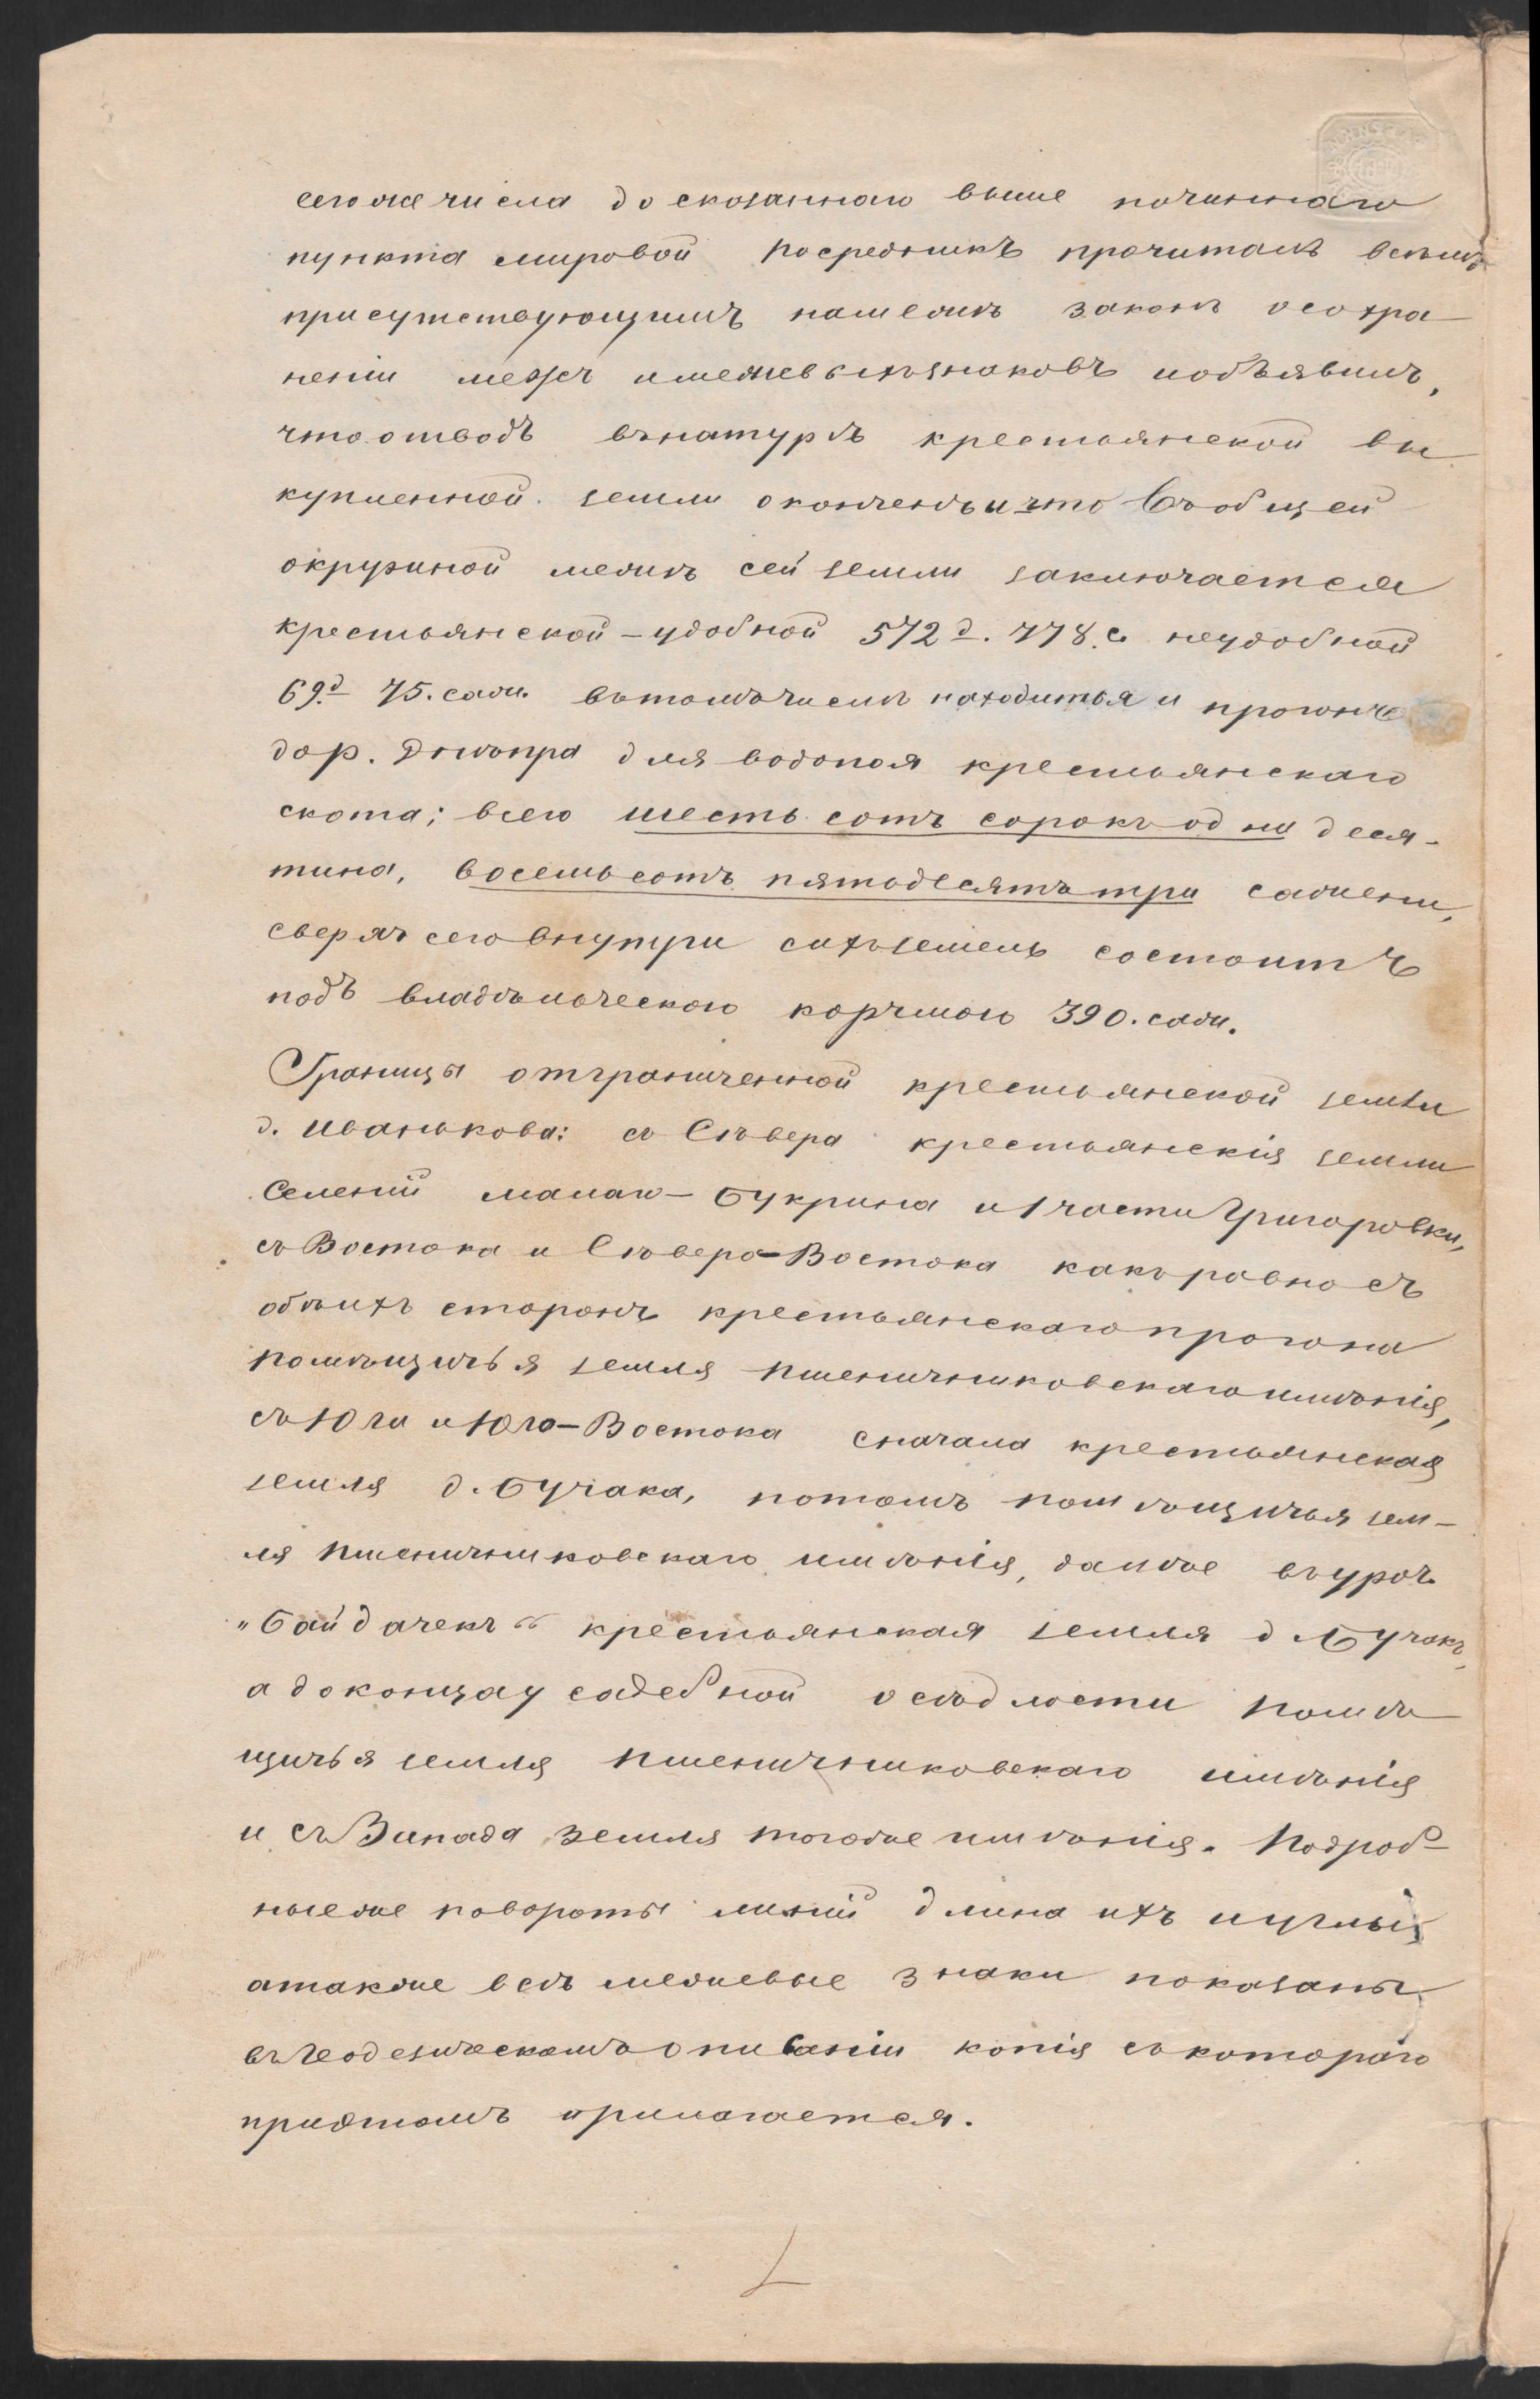 сегоже числа до сказаннаго выше починнаго
пункта мировой посредникъ прочиталъ всѣмъ
присутствующимъ намежѣ законъ осохра
неніи межъ имежевыхъзнаковъ иобъявилъ,
чтоотводъ вънатурѣ крестьянской вы
купленной земли оконченъ и что въ общей
окружной межѣ сей земли заключается
крестьянской – удобной 572 д. 778. с неудобной
69. д 75. саж. въ томъ числѣ находиться и прогонъ
до р. Днѣпра для водопоя крестьянскаго
скота; всего шесть сотъ сорокъ одна деся-
тина, восемьсотъ пятьдесятъ три сажени,
сверхъ сего внутри сихъ земель состоитъ
подъ владѣльческою корчмою 390. саж.
Границы отграниченной крестьянской земли
д. Иванькова: съ Сѣвера крестьянскія земли
селеній малаго – Букрина и 1 части Григоровки,
съ Востока и Сѣверо-Востока какъ равно съ
обѣихъ сторонъ крестьянскаго прогона
помѣщичья земля Пшеничниковскаго имѣнія,
съ Юга и Юго – Востока сначала крестьянская
земля д. Бучака, потомъ помѣщичья зем-
ля Пшеничниковскаго имѣнія, далѣе въ уроч.
„Байдачекъ“ крестьянская земля д. Бучакъ,
а до конца усадебной осѣдлости помѣ
щичья земля Пшеничниковскаго имѣнія
и съ Запада земля тогоже имѣнія. Подроб-
ныеже повороты линій длина ихъ и углы
а также всѣ межевые знаки показаны
въ геодезическомъ описаніи копія съ котораго
приэтомъ прилагается.